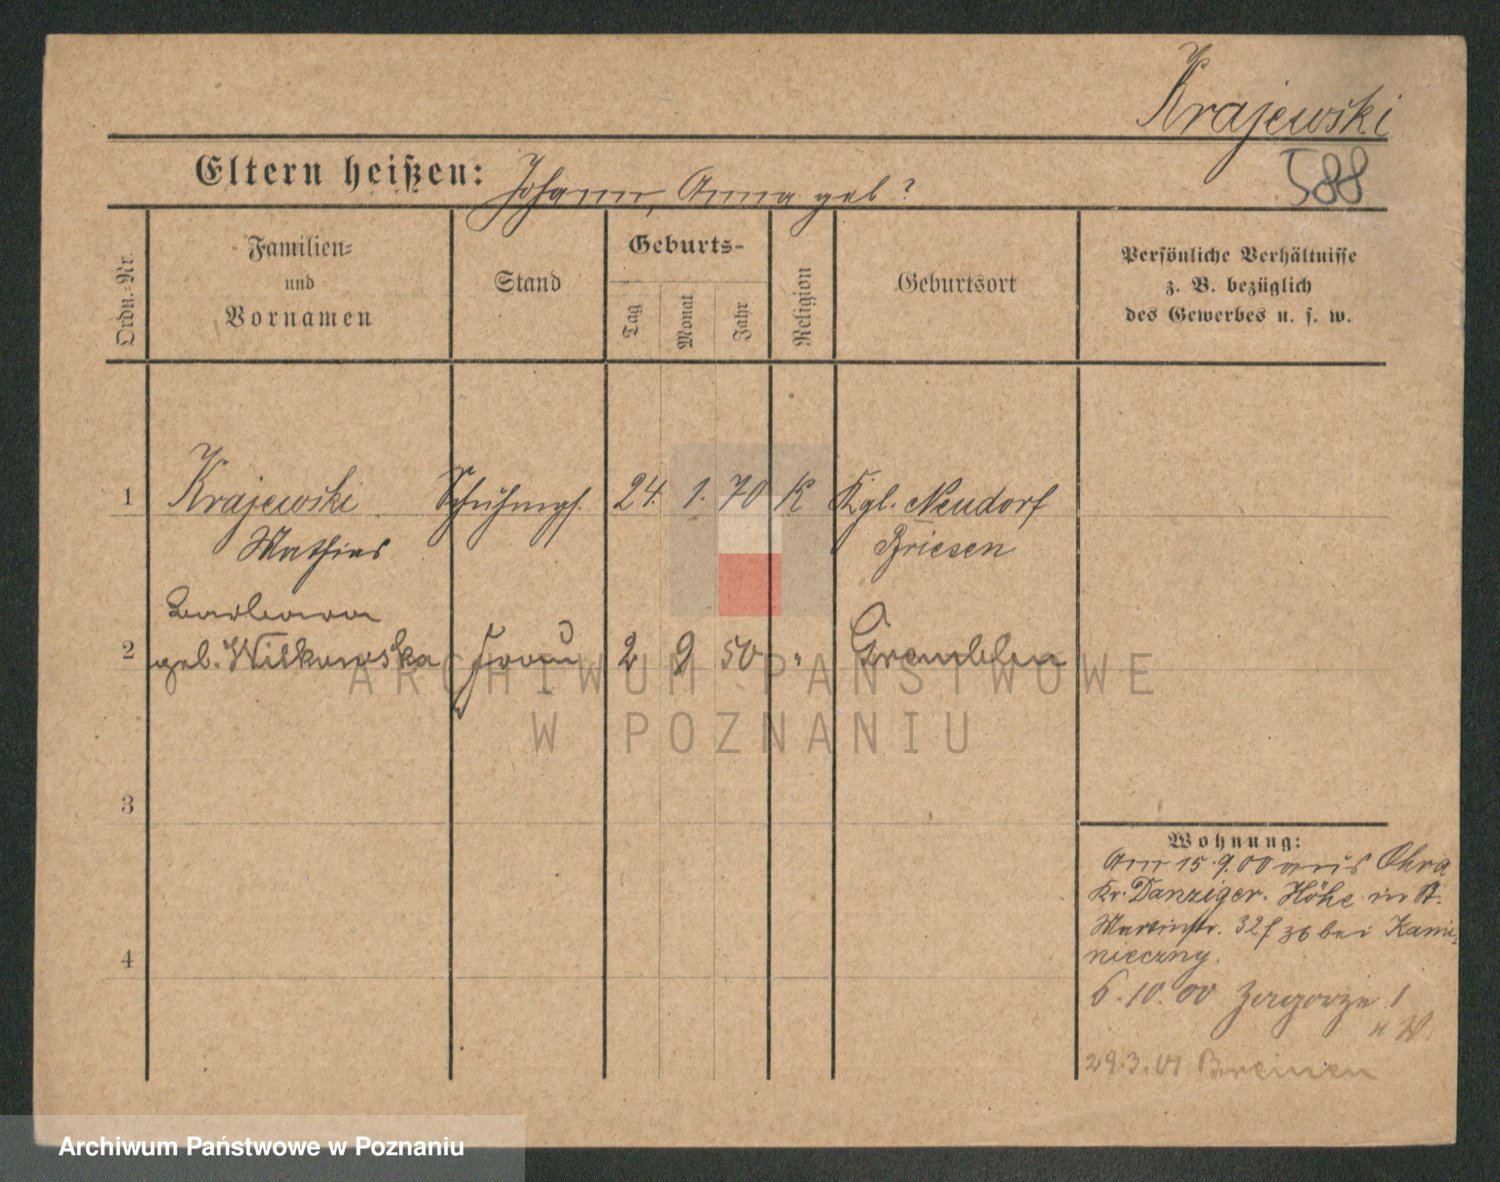 Krajewski
588
Eltern heißen: Johann, Anna geb ?
Ordn.-Nr.
Familien-
und
Vornamen
Stand
Geburts-
Tag
Monat
Jahr
Religion
Geburtsort
Persönliche Verhältnisse
z. B. bezüglich
des Gewerbes u. s. w.
1 Krajewski Schuhmgs. 24. 1. 70 K Kgl. Neudorf
Mathias Briesen
Barbara
2 geb. Wilkowska Frau 2 9 50 " Gremblin
ARCHIWUM PAŃSTWOWE
W POZNANIU
3
4
Wohnung:
Am 15.9.00 aus Ohra
Kr. Danziger. Höhe in St.
Martinstr. 32 bei Kami-
nieczny.
6.10.00 Zagorze 1
29.3.01 Bremen
Archiwum Państwowe w Poznaniu